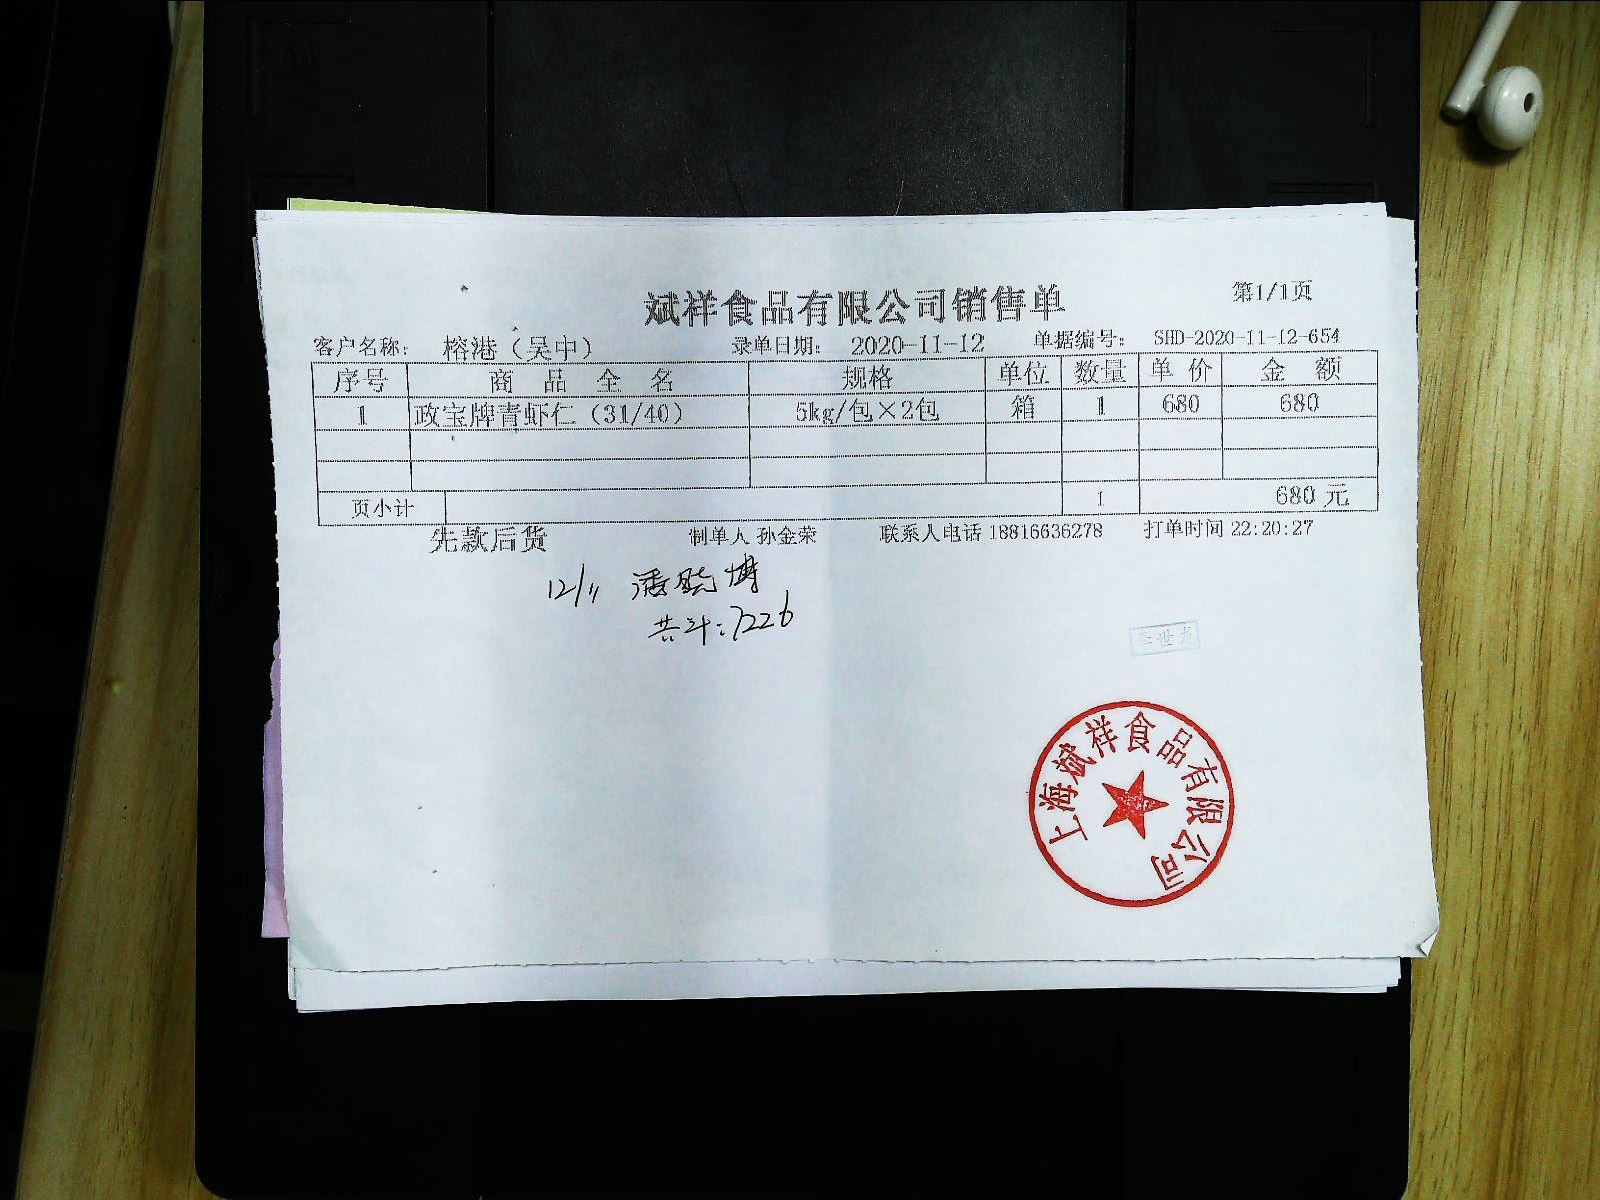 斌祥食品有限公司销售单
第1/1页
客户名称: 榕港（吴中） 录单日期: 2020-11-12 单据编号: SHD-2020-11-12-654
序号 商品全名 规格 单位 数量 单价 金额
1 政宝牌青虾仁（31/40） 5kg/包×2包 箱 1 680 680
页小计 1 680 元
先款后货 制单人 孙金荣 联系人电话 18816636278 打单时间 22:20:27
12/11 潘晓博
共计:7226
世龙
上海斌祥食品有限公司